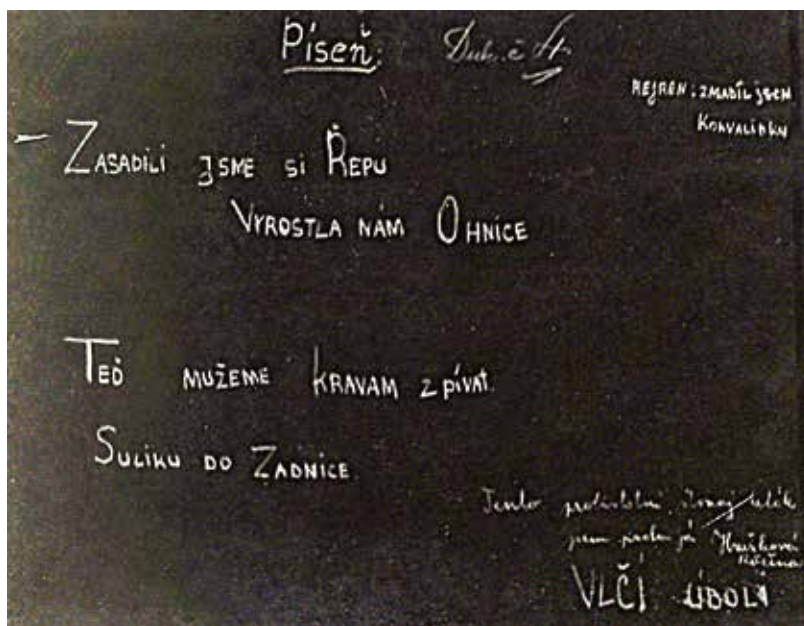 Píseň:
REJRÉN: ZMADÍL JSEM
KONVALINKU
– ZASADILI JSME SI ŘEPU
VYROSTLA NÁM OHNICE
TEĎ MUŽEME KRAVAM ZPÍVAT.
SULIKU DO ZADNICE
Tento
já
VLČÍ ÚBOLÍ